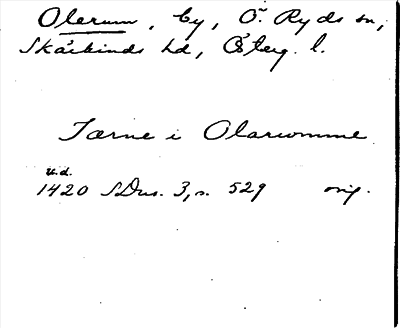 Olerum, by, Ö. Ryds sn,
Skärkinds hd, Österg. l.
Tærne i Olarumme
u.d.
1420 SDns. 3, s. 529 orig.